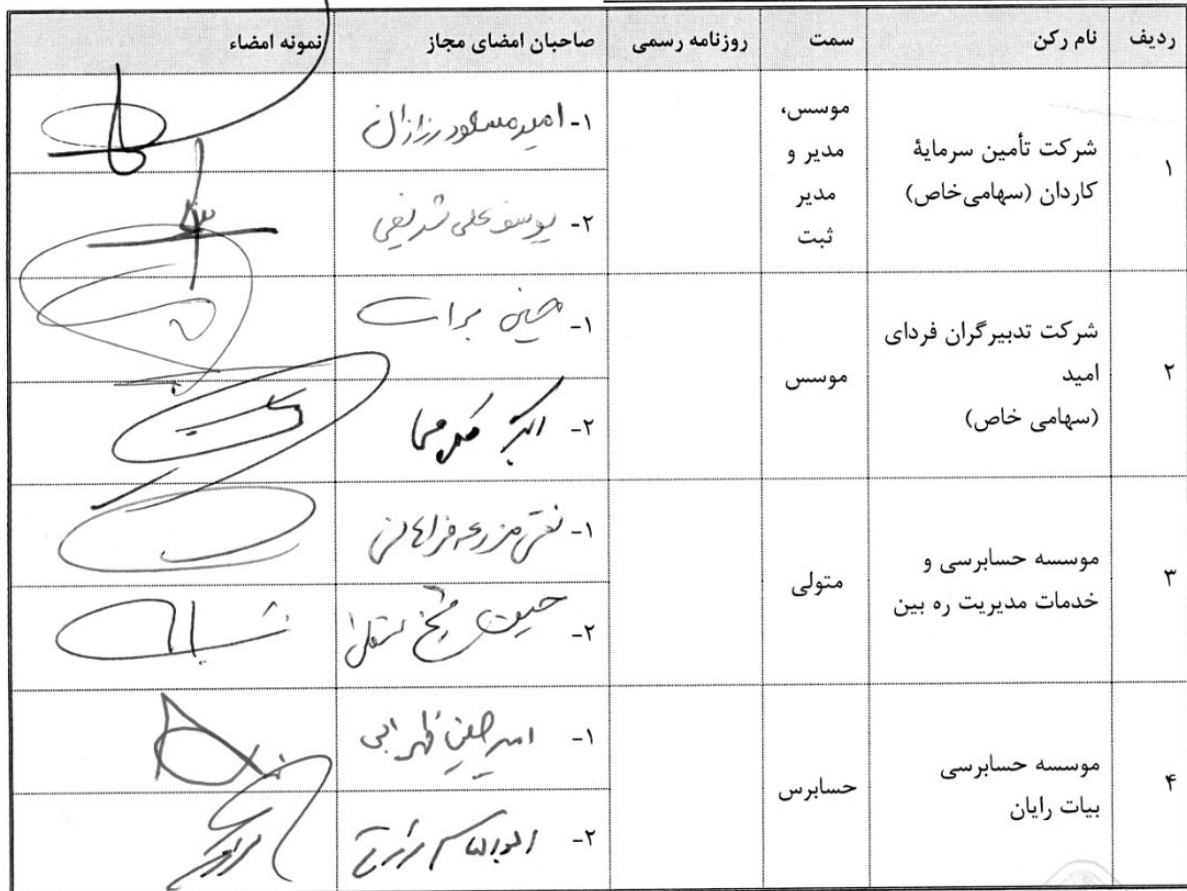 ردیف نام رکن سمت روزنامه رسمی صاحبان امضای مجاز نمونه امضاء
۱
شرکت تأمین سرمایۀ
کاردان (سهامی‌خاص)
موسس،
مدیر و
مدیر
ثبت
۱- امیرمسعود رزازان
۲- یوسفعلی شریفی
۲
شرکت تدبیرگران فردای
امید
(سهامی خاص)
موسس
۱- حسین برات
۲- اکبر
۳
موسسه حسابرسی و
خدمات مدیریت ره بین
متولی
۱- نقی مزرعه فراهانی
۲- حسین شیخ سفلی
۴
موسسه حسابرسی
بیات رایان
حسابرس
۱- امیرحسین ظهرابی
۲- ابوالقاسم